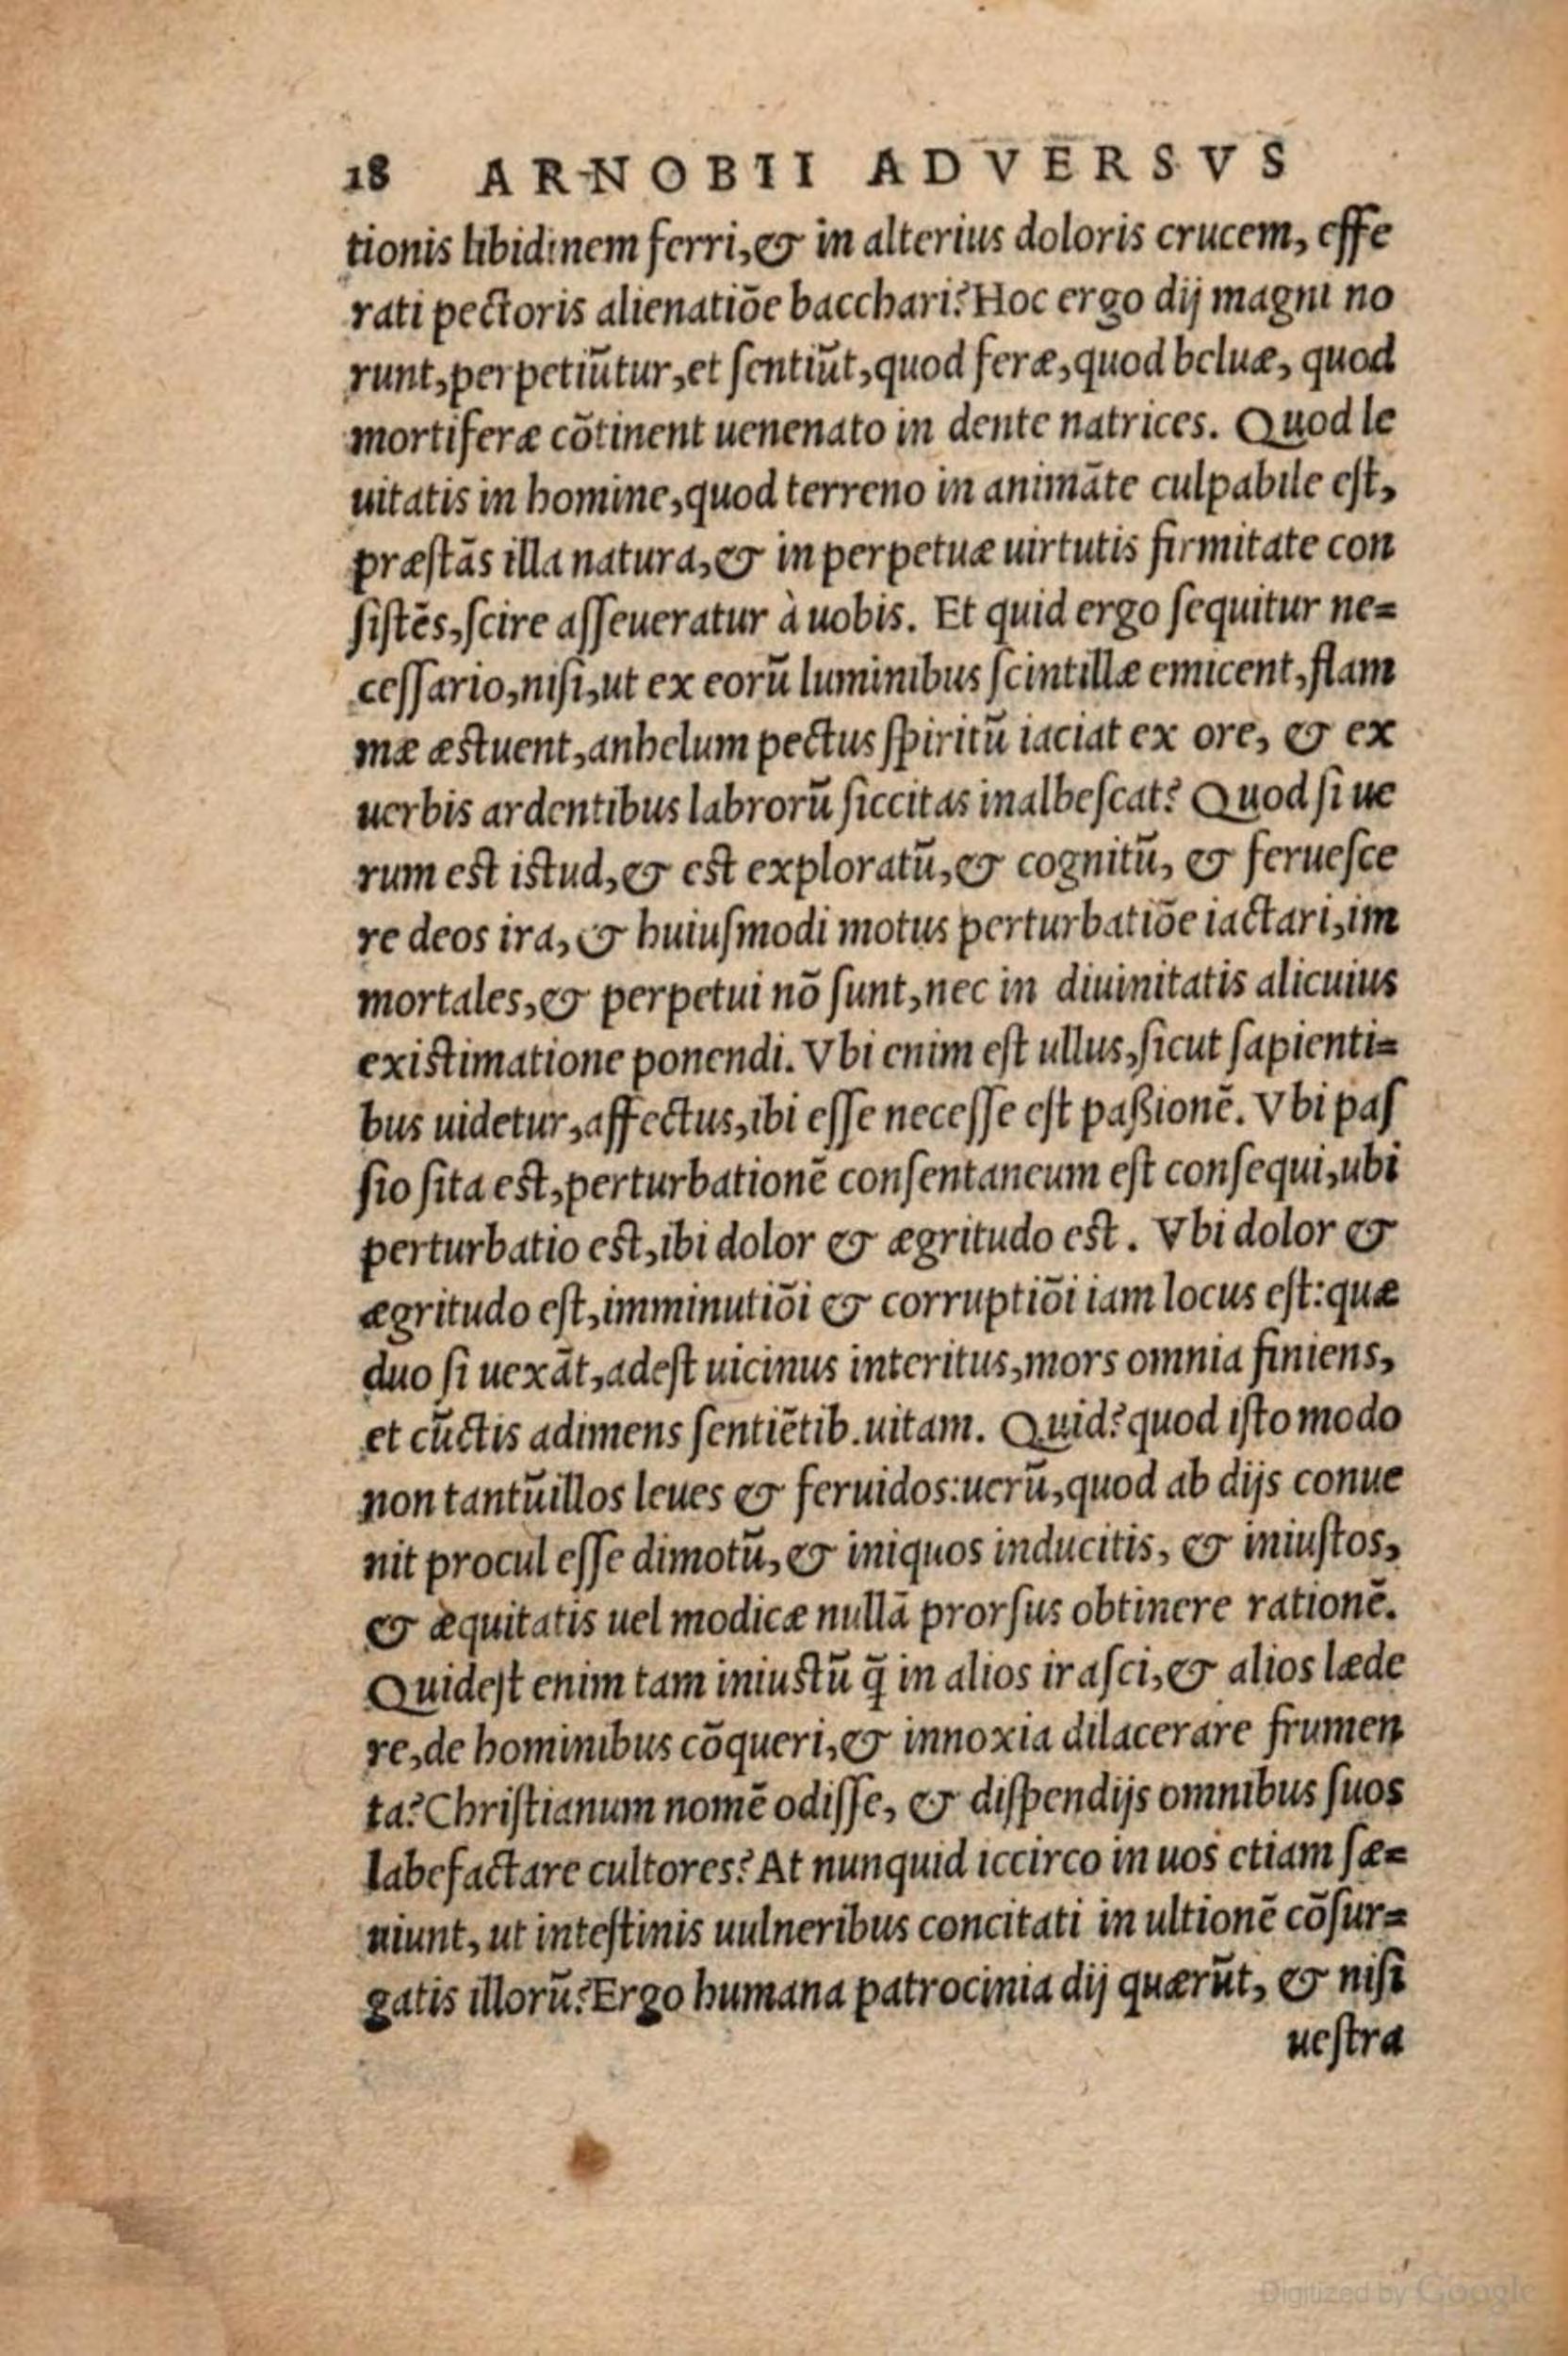 18 ARNOBII ADVERSVS
tionis libidinem ferri,& in alterius doloris crucem, effe
rati pectoris alienatiõe bacchari? Hoc ergo dij magni no
runt,perpetiũtur,et ſentiũt,quod feræ,quod beluæ, quod
mortiferæ cõtinent uenenato in dente natrices. Quod le
uitatis in homine,quod terreno in animãte culpabile eſt,
præſtãs illa natura,& in perpetuæ uirtutis firmitate con
ſiſtẽs,ſcire aſſeueratur à uobis. Et quid ergo ſequitur ne=
ceſſario,niſi,ut ex eorũ luminibus ſcintillæ emicent,flam
mæ æſtuent,anhelum pectus ſpiritũ iaciat ex ore, & ex
uerbis ardentibus labrorũ ſiccitas inalbeſcat? Quod ſi ue
rum eſt iſtud,& eſt exploratũ,& cognitũ, & ferueſce
re deos ira,& huiuſmodi motus perturbatiõe iactari,im
mortales,& perpetui nõ ſunt,nec in diuinitatis alicuius
exiſtimatione ponendi. Vbi enim eſt ullus,ſicut ſapienti=
bus uidetur,affectus,ibi eſſe neceſſe eſt paßionẽ. Vbi paſ
ſio ſita eſt,perturbationẽ conſentaneum eſt conſequi,ubi
perturbatio eſt,ibi dolor & ægritudo eſt. Vbi dolor &
ægritudo eſt,imminutiõi & corruptiõi iam locus eſt:quæ
duo ſi uexãt,adeſt uicinus interitus,mors omnia finiens,
et cũctis adimens ſentiẽtib.uitam. Quid?quod iſto modo
non tantũ illos leues & feruidos:uerũ,quod ab dijs conue
nit procul eſſe dimotũ,& iniquos inducitis, & iniuſtos,
& æquitatis uel modicæ nullã prorſus obtinere rationẽ.
Quid eſt enim tam iniuſtũ q̃ in alios iraſci,& alios læde
re,de hominibus cõqueri,& innoxia dilacerare frumen
ta?Chriſtianum nomẽ odiſſe, & diſpendijs omnibus ſuos
labefactare cultores?At nunquid iccirco in uos etiam ſæ=
uiunt, ut inteſtinis uulneribus concitati in ultionẽ cõſur=
gatis illorũ?Ergo humana patrocinia dij quærũt, & niſi
ueſtra
Digitized by Google